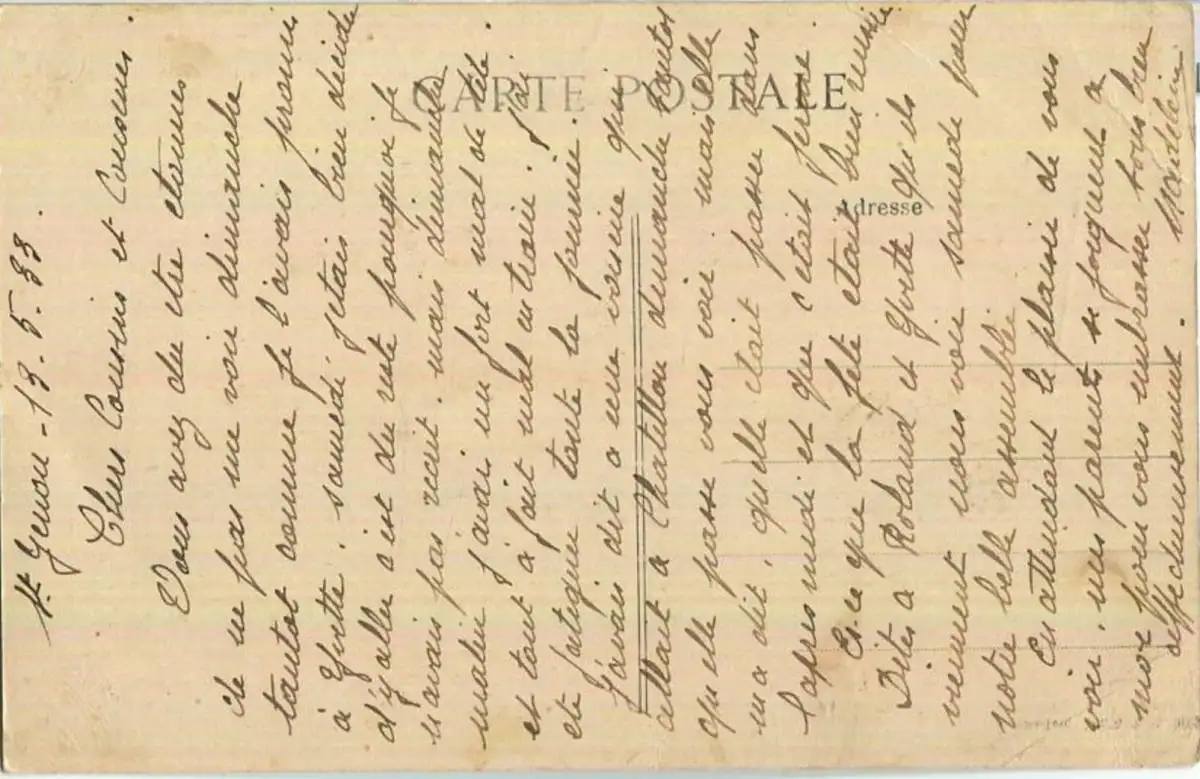 CARTE POSTALE
Adresse
St Genou - 19.5.33.
Chers Cousins et Cousines.
Vous avez du etre etonnes
de ne pas me voir dimanche
tantot comme je l'avais promis
à Yvette. samedi j'etais bien decide
d'y aller c'est du reste pourquoi je
n'avais pas recrit. mais dimanche
matin j'avais un fort mal de tête
et tout à fait mal en train. j'ai
ete fatiguee toute la journee.
J'avais dit a une voisine qui
allait a Chatillon dimanche tantot
qu'elle passe vous voir mais elle
m'a dit. qu'elle etait passee dans
l'apres midi et que c'etait ferme
Es-ce que la fete etait bien reussie.
Dites a Roland et Yvette qu'ils
viennent nous voir samedi pour
notre belle assemblée
En attendant le plaisir de vous
voir. mes parents se joignent a
moi pour vous embrasser tous bien
affectueusement. Madeleine